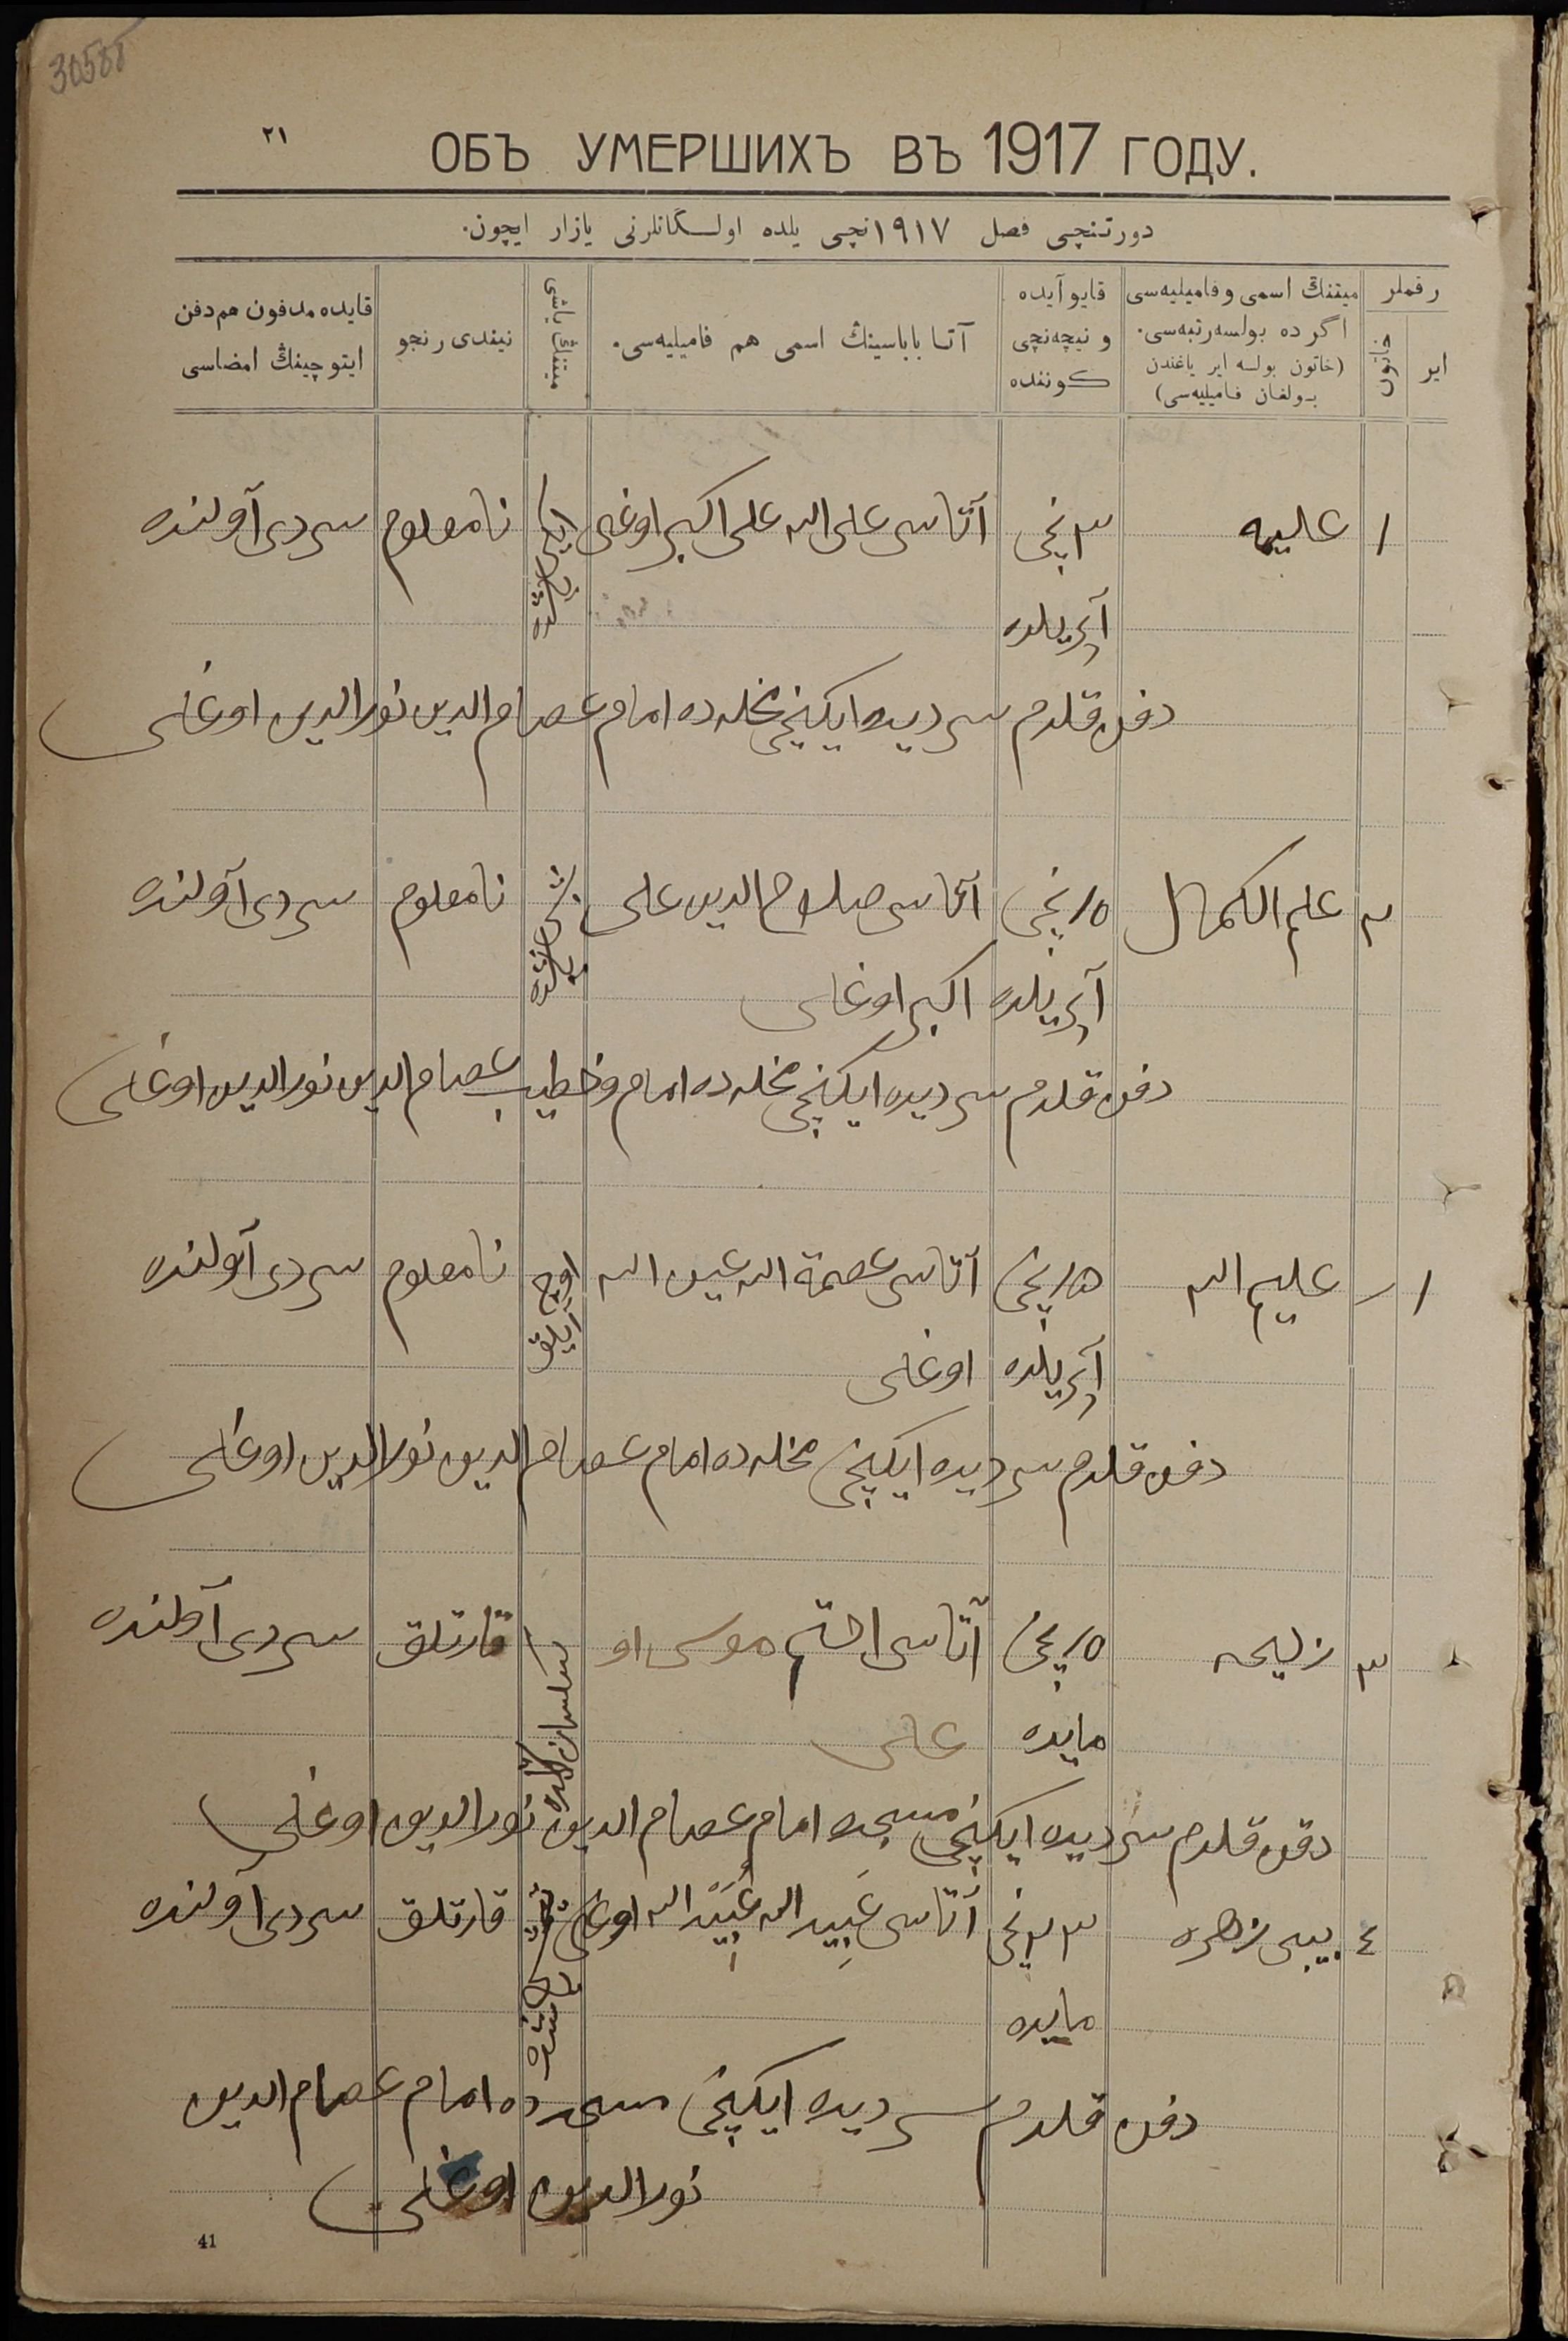 30588
٢١
ОБЪ УМЕРШИХЪ ВЪ 1917 ГОДУ.
دورتنچی فصل ١٩١٧نچی یلده اولـگانلرنی یازار ایچون.
رقملر
ایر
خاتون
میتنڭ اسمی و فامیلیه‌سی اگر ده بولسه رتبه‌سی. (خاتون بولسه ایر یاغندن بـولغان فامیلیه‌سی)
قایو آیده و نیچه‌نچی کوننده
آتـا باباسینڭ اسمی هم فامیلیه‌سی.
میتنڭ یاشی
نیندی رنجو
قایده مدفون هم دفن ایتوچینڭ امضاسی
١ علیمه ٣نچی آتاسی علی الله علی اکبر اوغلی نامعلوم سردی آولنده
آپریلده
دفن قلدم سردیده ایکنچی محله ده امام عصام الدین نورالدین اوغلی
٢ علم الکمال ١٥نچی آتاسی صلاح الدین علی نامعلوم سردی آولنده
آپریلده اکبر اوغلی
دفن قلدم سردیده ایکنچی محله ده امام وخطیب عصام الدین نورالدین اوغلی
١ علیم الله ١٥نچی آتاسی عصمة الله عین الله اوچ آیلق نامعلوم سردی آولنده
آپریلده اوغلی
دفن قلدم سردیده ایکنچی محله ده امام عصام الدین نورالدین اوغلی
٣ زلیحه ١٥نچی آتاسی احتم موسی او قارتلق سردی آولنده
مایده غلی
دفن قلدم سردیده ایکنچی مسجده امام عصام الدین نورالدین اوغلی
٤ بیبی زهره ٢٣نچی آتاسی عَبِید الله عُبَیْد الله اوغلی قارتلق سردی آولنده
مایده
دفن قلدم سردیده ایکنچی مسجدده امام عصام الدین
نورالدین اوغلی
41